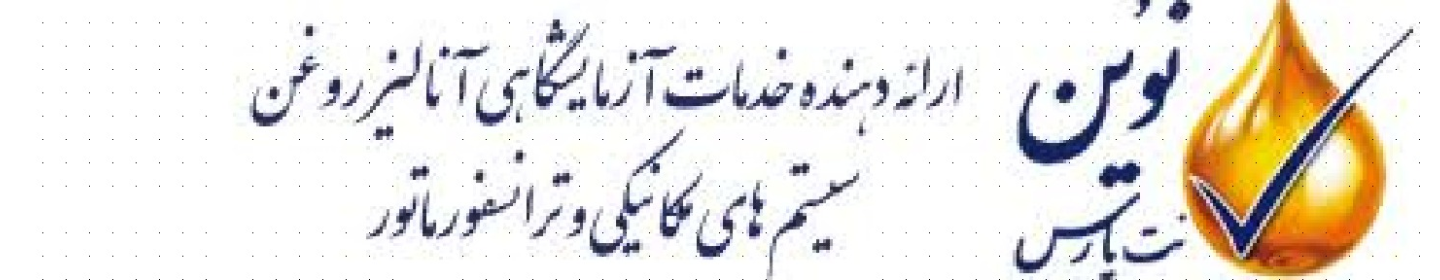 ارائه دهنده خدمات آزمایشگاهی آنالیز روغن
سیستم های مکانیکی و ترانسفورماتور
نوین
نت پارس